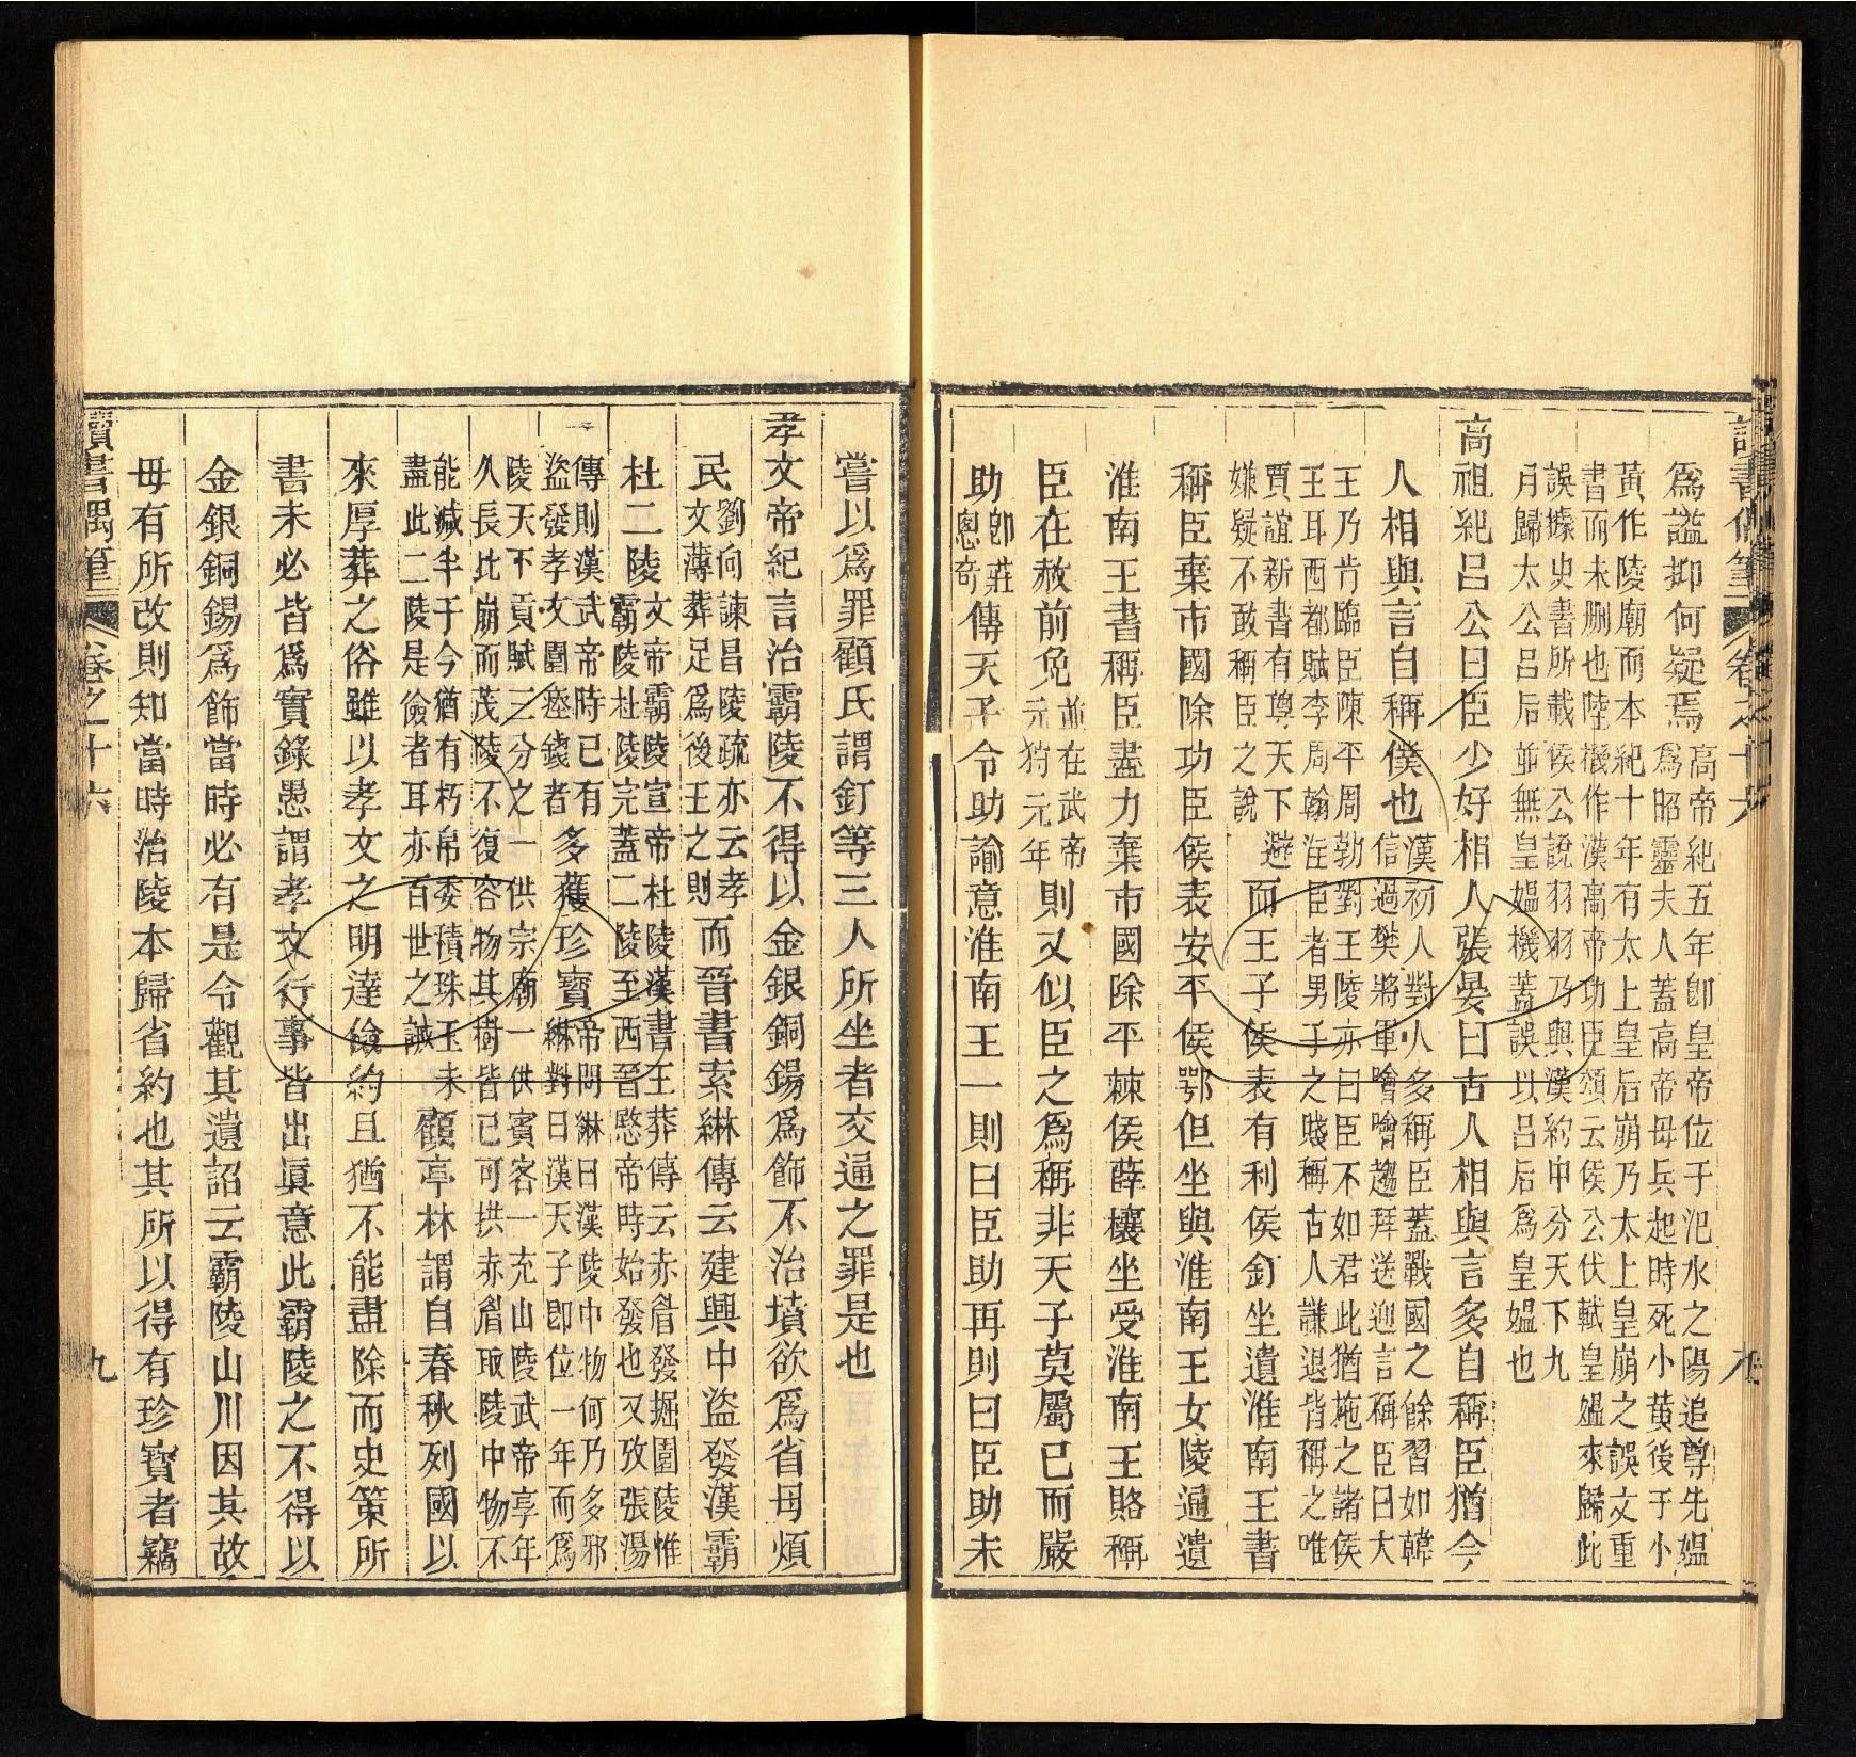 讀書偶筆 卷之十六 九
爲諡抑何疑焉
高帝紀五年卽皇帝位于汜水之陽追尊先媼
爲昭靈夫人蓋高帝母兵起時死小黃後于小
黃作陵廟而本紀十年有太上皇后崩乃太上皇崩之誤文重
書而未刪也陸機作漢高帝功臣頌云侯公伏軾皇媼來歸此
誤據史書所載侯公說羽羽乃與漢約中分天下九
月歸太公呂后並無皇媼機蓋誤以呂后爲皇媼也
高祖紀呂公曰臣少好相人張晏曰古人相與言多自稱臣猶今
人相與言自稱僕也
漢初人對人多稱臣蓋戰國之餘習如韓
信過樊將軍噲噲趨拜送迎言稱臣曰大
王乃肯臨臣陳平周勃對王陵亦曰臣不如君此猶施之諸侯
王耳西都賦李周翰注臣者男子之賤稱古人謙退皆稱之唯
賈誼新書有尊天下避
嫌疑不敢稱臣之說
而王子侯表有利侯釘坐遺淮南王書
稱臣棄市國除功臣侯表安平侯鄂但坐與淮南王女陵通遺
淮南王書稱臣盡力棄市國除平棘侯薛穰坐受淮南王賂稱
臣在赦前免
並在武帝
元狩元年
則又似臣之爲稱非天子莫屬已而嚴
助
卽莊
悤奇
傳天子令助諭意淮南王一則曰臣助再則曰臣助未
嘗以爲罪顧氏謂釘等三人所坐者交通之罪是也
孝文帝紀言治霸陵不得以金銀銅錫爲飾不治墳欲爲省毋煩
民
劉向諫昌陵疏亦云孝
文薄葬足爲後王之則
而晉書索綝傳云建興中盜發漢霸
杜二陵
文帝霸陵宣帝杜陵漢書王莽傳云赤眉發掘園陵惟
霸陵杜陵完蓋二陵至西晉愍帝時始發也又攷張湯
傳則漢武帝時已有
盜發孝文園瘞錢者
多獲珍寶
帝問綝曰漢陵中物何乃多邪
綝對曰漢天子卽位一年而爲
陵天下貢賦三分之一供宗廟一供賓客一充山陵武帝享年
久長比崩而茂陵不復容物其樹皆已可拱赤眉取陵中物不
能減半于今猶有朽帛委積珠玉未
盡此二陵是儉者耳亦百世之誡
顧亭林謂自春秋列國以
來厚葬之俗雖以孝文之明達儉約且猶不能盡除而史策所
書未必皆爲實錄愚謂孝文行事皆出眞意此霸陵之不得以
金銀銅錫爲飾當時必有是令觀其遺詔云霸陵山川因其故
毋有所改則知當時治陵本歸省約也其所以得有珍寶者竊
讀書偶筆 卷之十六 九